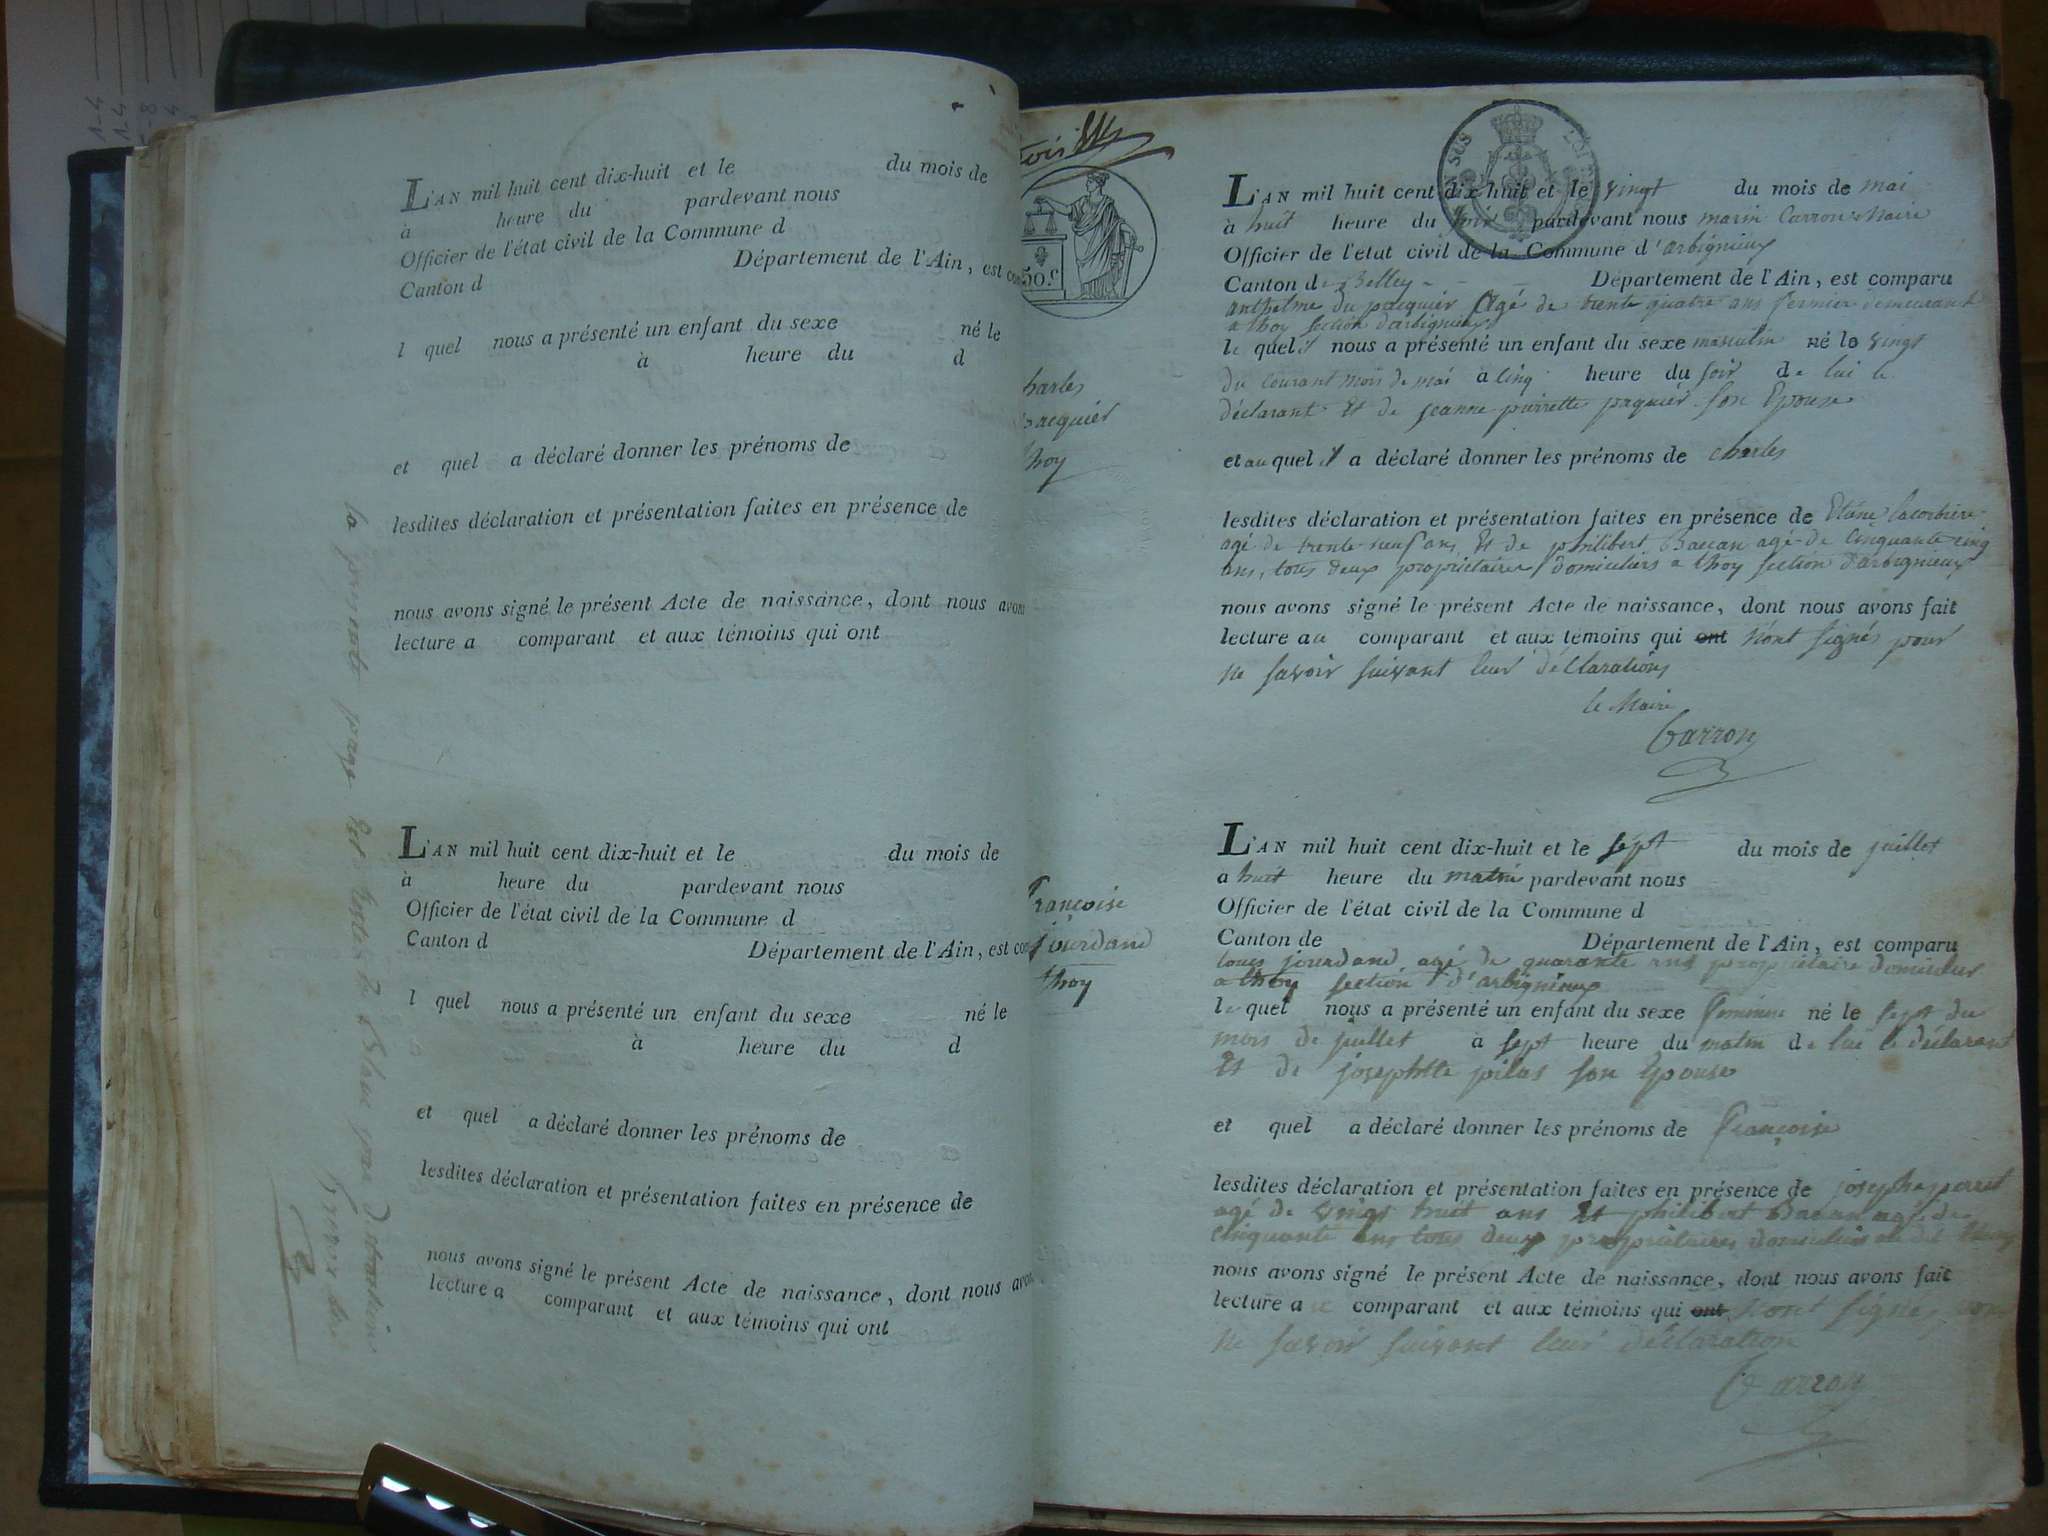 L'AN mil huit cent dix-huit et le du mois de
à heure du pardevant nous
Officier de l'état civil de la Commune d
Canton d Département de l'Ain, est com
l quel nous a présenté un enfant du sexe né le
à heure du d
et quel a déclaré donner les prénoms de
lesdites déclaration et présentation faites en présence de
nous avons signé le présent Acte de naissance, dont nous avons
lecture a comparant et aux témoins qui ont
L'AN mil huit cent dix-huit et le du mois de
à heure du pardevant nous
Officier de l'état civil de la Commune d
Canton d Département de l'Ain, est com
l quel nous a présenté un enfant du sexe né le
à heure du d
et quel a déclaré donner les prénoms de
lesdites déclaration et présentation faites en présence de
nous avons signé le présent Acte de naissance, dont nous avon
lecture a comparant et aux témoins qui ont
la present page est restee Blanc par distraction
50.c
harles
acquier
thoy
L'AN mil huit cent dix-huit et le vingt du mois de mai
à huit heure du soir pardevant nous marin Carron Maire
Officier de l'état civil de la Commune d'arbignieux
Canton de Belley Département de l'Ain, est comparu
anthelme du pacquier Agé de trente quatre ans fermier demeurant
a thoy section d'arbignieux
le quel il nous a présenté un enfant du sexe masculin né le vingt
du courant mois de mai à cinq heure du soir de lui le
déclarant Et de jeanne pierrette paquier son Epouse
et au quel il a déclaré donner les prénoms de charles
lesdites déclaration et présentation faites en présence de
agé de trente neuf ans Et de philibert Baccan agé de Cinquante cinq
ans, tous deux propriétaires domiciliers a thoy section d'arbignieux
nous avons signé le présent Acte de naissance, dont nous avons fait
lecture au comparant et aux témoins qui ont n'ont signés pour
ne savoir suivant leur déclarations
le Maire
Carron
françoise
jourdand
thoy
L'AN mil huit cent dix-huit et le sept du mois de juillet
a huit heure du matin pardevant nous
Officier de l'état civil de la Commune d
Canton de Département de l'Ain, est comparu
louis jourdand agé de quarante ans propriétaire domicilier
a thoy section d'arbignieux
le quel nous a présenté un enfant du sexe feminin né le sept du
mois de juillet à sept heure du matin de lui le déclarant
Et de josephtte pilas son Epouse
et quel a déclaré donner les prénoms de françoise
lesdites déclaration et présentation faites en présence de joseph perret
agé de vingt huit ans Et philibert Bacan agé de
cinquante ans tous deux propriétaires domiciliers au dit thoy
nous avons signé le présent Acte de naissance, dont nous avons fait
lecture a comparant et aux témoins qui ont n'ont signés pour
ne savoir suivant leur déclaration
Carron